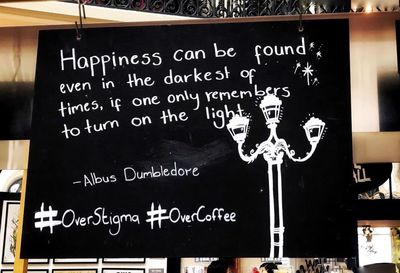 Happiness can be found
even in the darkest of
times, if one only remembers
to turn on the light
-Albus Dumbledore
#OverStigma #OverCoffee